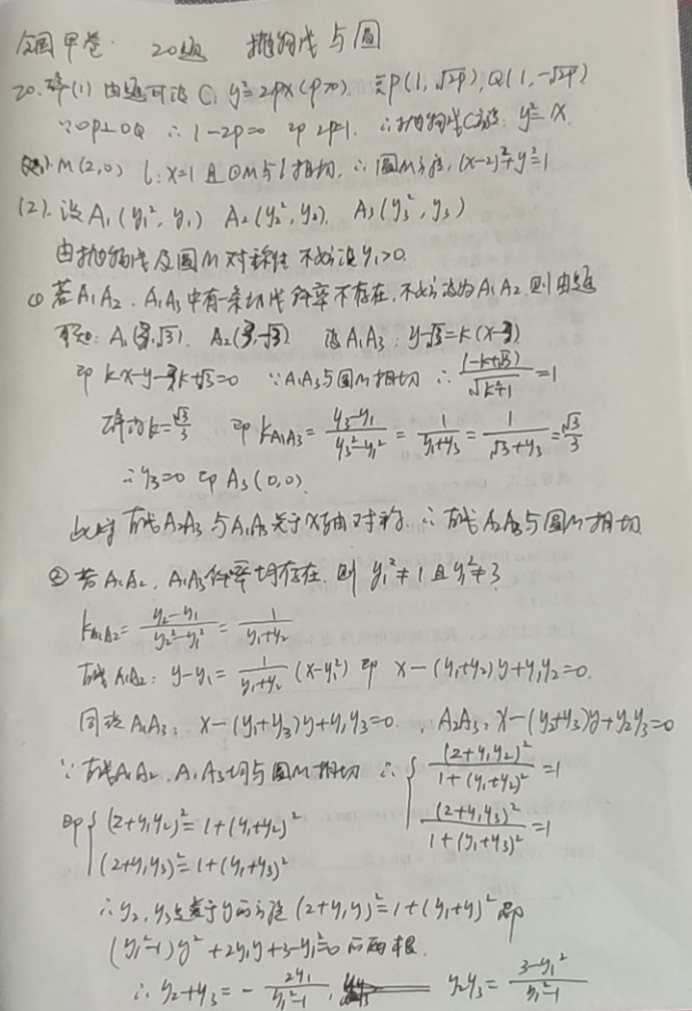 全国甲卷. 20题 抛物线与圆
20.解(1) 由题可设 C: y²=2px(p>0). 则P(1,√2p),Q(1,-√2p)
∵OP⊥OQ ∴1-2p=0 即2p=1. ∴抛物线C方程: y²=x.
M(2,0) l:x=1 且⊙M与l相切, ∴圆M方程,(x-2)²+y²=1
(2). 设A₁(y₁²,y₁) A₂(y₂²,y₂). A₃(y₃²,y₃)
由抛物线及圆M对称性 不妨设y₁>0.
① 若A₁A₂. A₁A₃中有一条切线斜率不存在,不妨设为A₁A₂.则由题
可知: A₁(3,√3). A₂(3,-√3) 设A₁A₃: y-√3=k(x-3)
即kx-y-3k+√3=0 ∵A₁A₃与圆M相切 ∴|-k+√3|/√(k²+1)=1
解为k=√3/3 即k_{A₁A₃}=(y₃-y₁)/(y₃²-y₁²)=1/(y₁+y₃)=1/(√3+y₃)=√3/3
∴y₃=0 即A₃(0,0).
此时 直线A₂A₃与A₁A₃关于x轴对称. ∴直线A₂A₃与圆M相切.
② 若A₁A₂, A₁A₃斜率均存在. 则y₁²≠1且y₁²≠3
k_{A₁A₂}=(y₂-y₁)/(y₂²-y₁²)=1/(y₁+y₂)
直线A₁A₂: y-y₁=1/(y₁+y₂)(x-y₁²) 即 x-(y₁+y₂)y+y₁y₂=0.
同设A₁A₃: x-(y₁+y₃)y+y₁y₃=0. A₂A₃: x-(y₂+y₃)y+y₂y₃=0
∵直线A₁A₂.A₁A₃均与圆M相切 ∴{(2+y₁y₂)²/(1+(y₁+y₂)²)=1
(2+y₁y₃)²/(1+(y₁+y₃)²)=1
即{(2+y₁y₂)²=1+(y₁+y₂)²
(2+y₁y₃)²=1+(y₁+y₃)²
∴y₂,y₃是关于y的方程(2+y₁y)²=1+(y₁+y)²即
(y₁²-1)y²+2y₁y+3-y₁²=0的两根.
∴y₂+y₃=-2y₁/(y₁²-1), y₂y₃=(3-y₁²)/(y₁²-1)